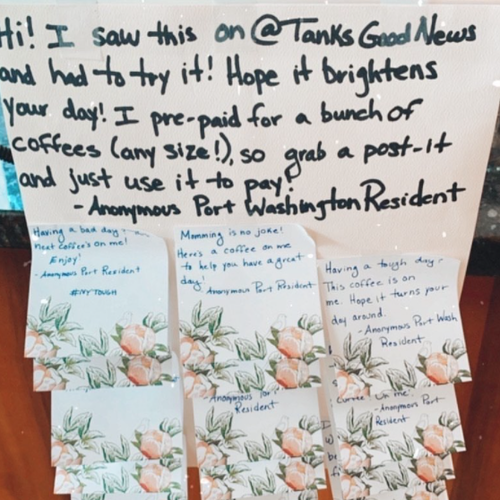 Hi! I saw this on @TanksGoodNews
and had to try it! Hope it brightens
your day! I pre-paid for a bunch of
coffees (any size!), so grab a post-it
and just use it to pay!
- Anonymous Port Washington Resident
Having a bad day?
next coffee's on me!
Enjoy!
- Anonymous Port Resident
#NYTOUGH
Momming is no joke!
Here's a coffee on me
to help you have a great
day!
- Anonymous Port Resident
Having a tough day?
This coffee is on
me. Hope it turns your
day around.
- Anonymous Port Wash
Resident
Anonymous Port
Resident
on me!
- Anonymous Port
Resident